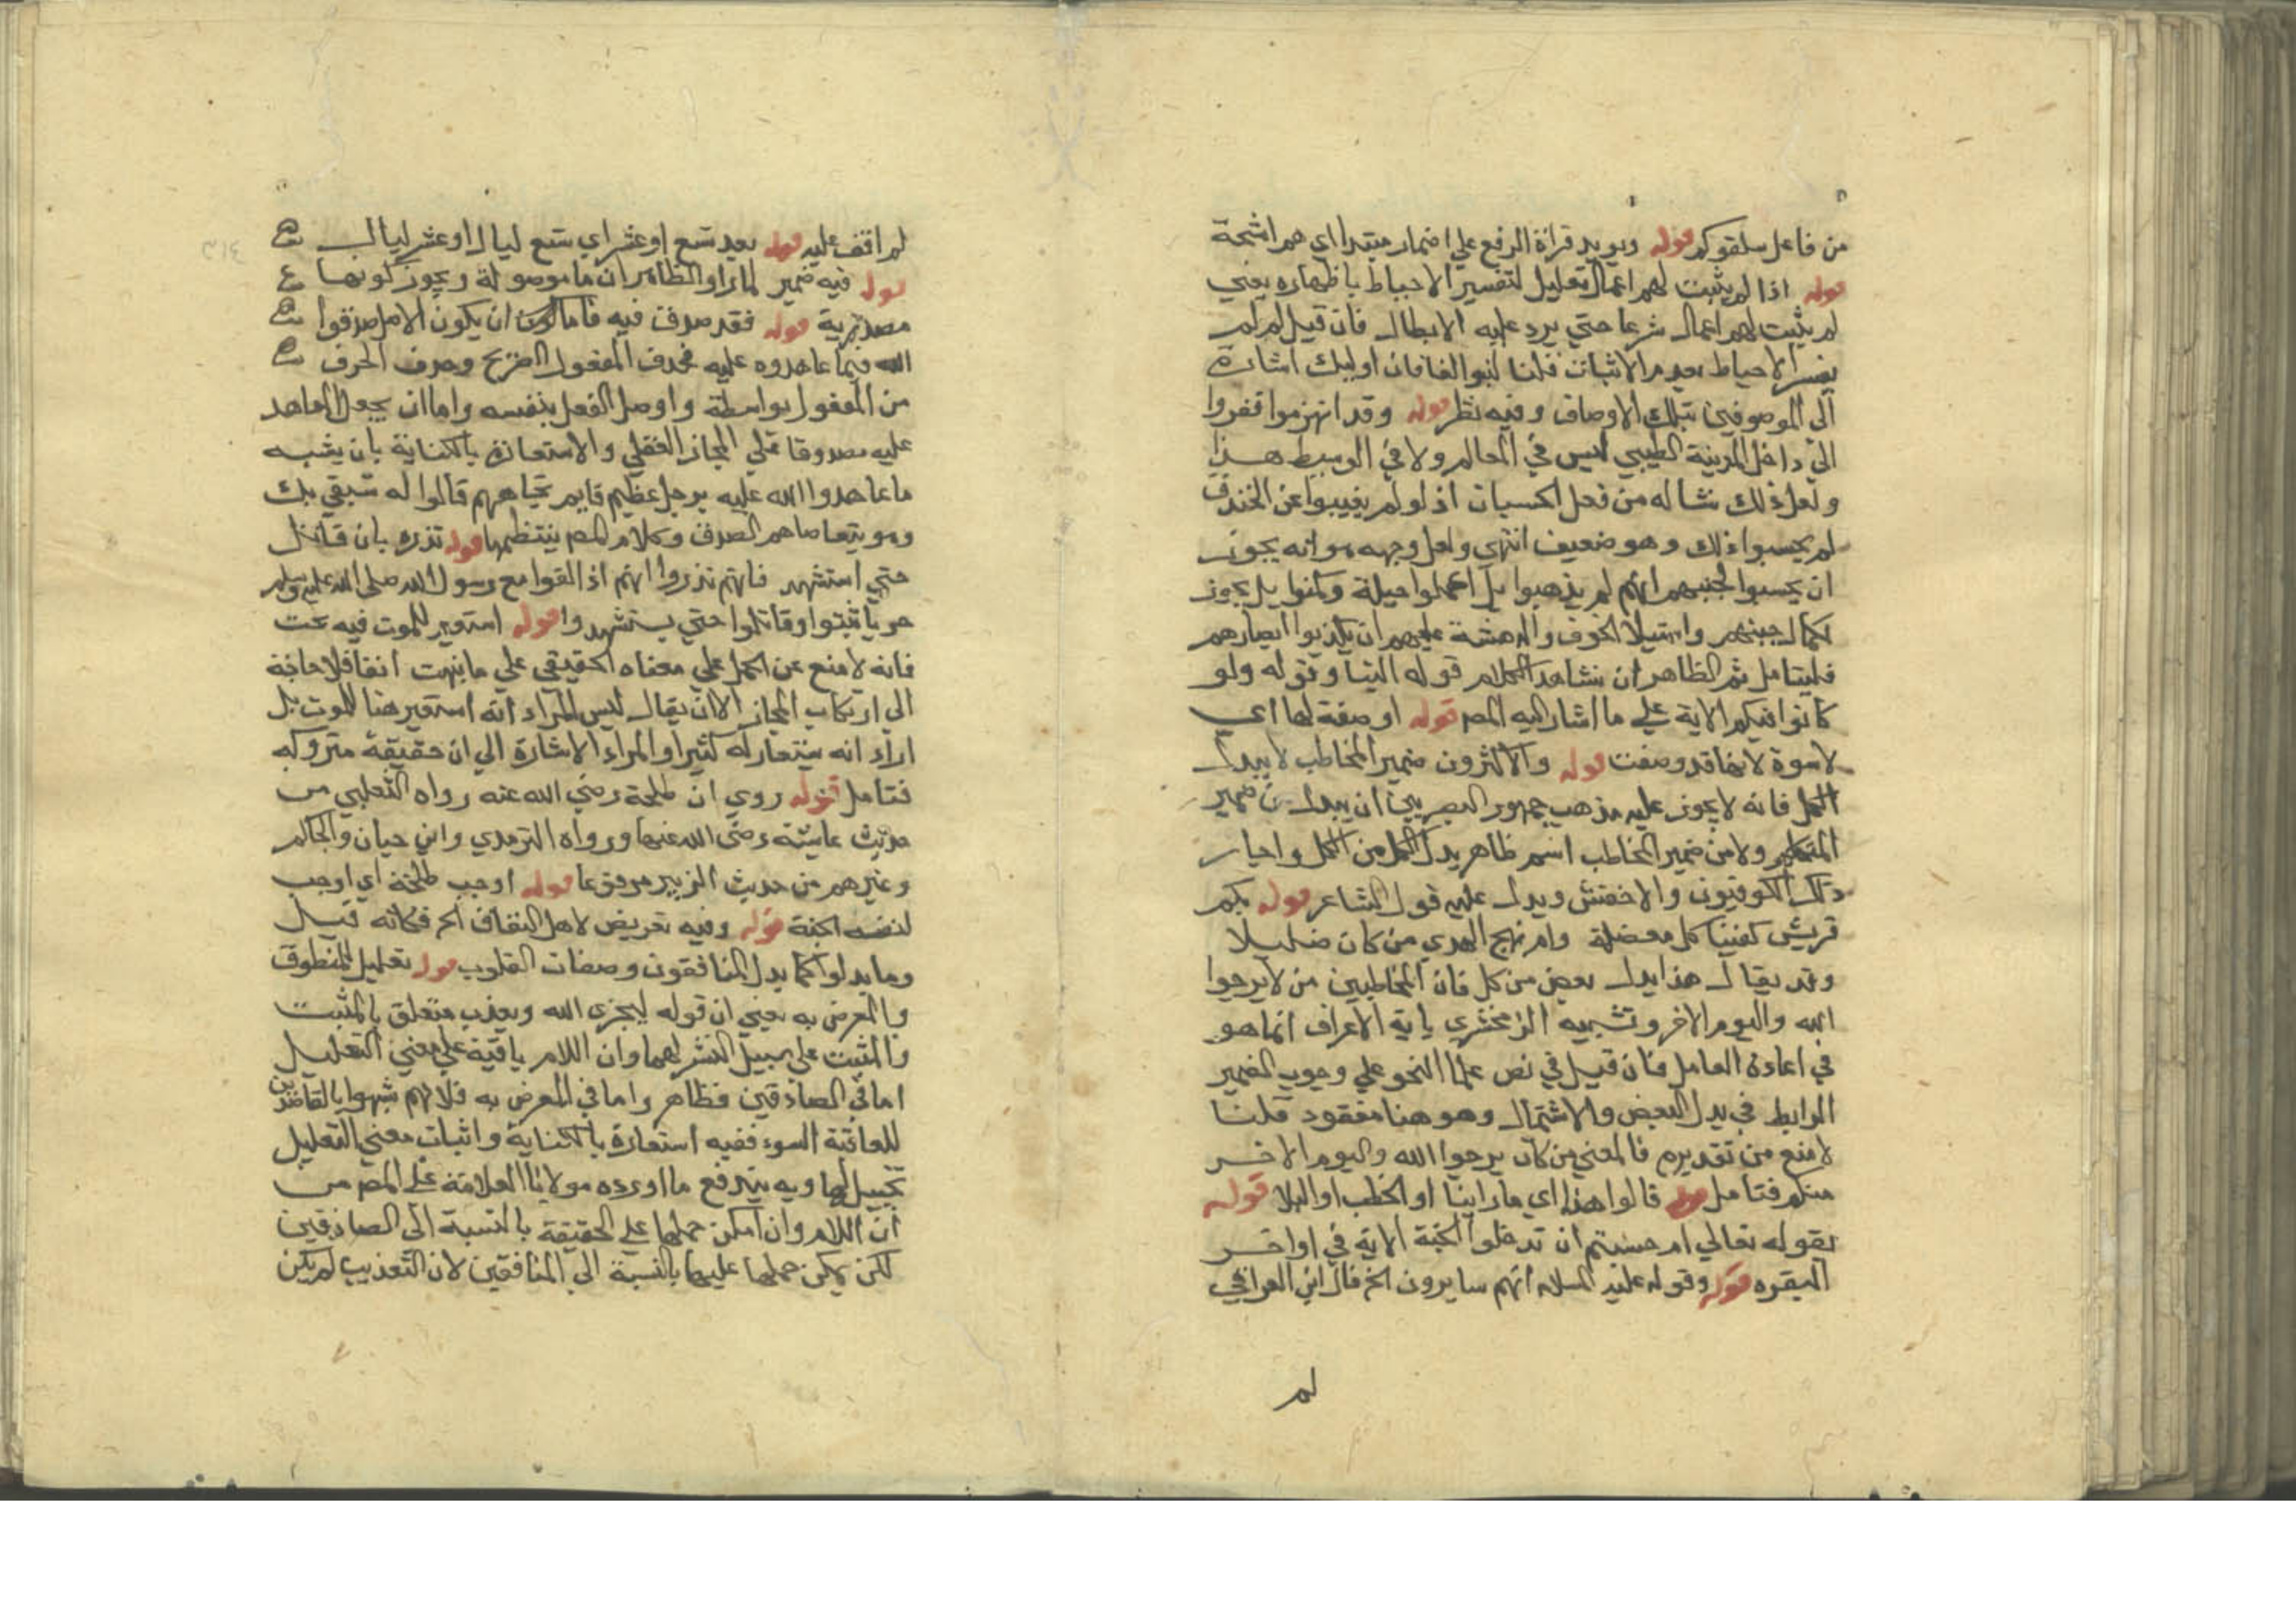 من فاعل سلقوكم قوله ويويد قراة الرفع علي اضمار مبتدا اي هم اشحة
قوله اذا لم يثبت لهم اعمال تعليل لتفسير الاحباط باظهاره يعني
لم يثبت لهم اعمال شرعا حتي يرد عليه الابطال فان قيل لم لم
يفسر الاحباط بعدم الاثبات قلنا لنبو الفا فان اوليك اشارة
الى الموصوفين بتلك الاوصاف وفيه نظر قوله وقد انهزموا ففروا
الي داخل المدينة الطيبي ليس في المعالم ولا في الوسيط هذا
ولعل ذلك نشا له من فحل الحسبان اذ لو لم يغيبوا عن الخندق
لم يحسبوا ذلك وهو ضعيف انتهي ولعل وجهه هو انه يجوز
ان يحسبوا لجبنهم انهم لم يذهبوا بل اعملوا حيلة وكمنوا بل يجوز
لكمال جبنهم واستيلا الخوف والدهشة عليهم ان يكذبوا ابصارهم
فليتامل ثم الظاهر ان منشا هذا الكلام قوله الينا وقوله ولو
كانوا فيكم الاية علي ما اشار اليه المص قوله او صفة لها اي
لاسوة لانها قد وصفت قوله والاكثرون ضمير المخاطب لا يبدل
الكل فانه لا يجوز عليه مذهب جمهور البصريين ان يبدل من ضمير
المتكلم ولا من ضمير المخاطب اسم ظاهر بدل الكل من الكل واجاز
ذلك الكوفيون والاخفش ويدل عليه قول الشاعر قوله بكم
قريش كفينا كل معضلة وام نهج الهدي من كان ضليلا
وقد يقال هذا بدل بعض من كل فان المخاطبين من لا يرجوا
الله واليوم الاخر وتشبيه الزمخشري باية الاعراف انما هو
في اعادة العامل فان قيل في نص علما النحو علي وجوب الضمير
الرابط في بدل البعض والاشتمال وهو هنا مفقود قلنا
لا منع من تقديره فالمعني من كان يرجوا الله واليوم الاخر
منكم فتامل قوله قالوا هذا اي ما راينا او الخطب او البلا قوله
بقوله تعالي ام حسبتم ان تدخلوا الجنة الاية في اواخر
البقره قوله وقوله عليه السلام انهم سايرون الخ قال ابن العراقي
لم
لم اقف عليه قوله بعد تسع او عشر اي تسع ليال او عشر ليال
قوله فيه ضمير لما راو الظاهر ان ما موصولة ويجوز كونها
مصدرية قوله فقد صدق فيه فاما ان يكون الاصل صدقوا
الله فيما عاهدوه عليه فحذف المفعول الصريح وحذف الحرف
من المفعول بواسطة واوصل الفعل بنفسه واما ان يجعل المعاهد
عليه مصدوقا علي المجاز العقلي والاستعارة بالكناية بان يشبه
ما عاهدوا الله عليه برجل عظيم قايم تجاههم قالوا له سنفي بك
وهو يتقاضاهم الصدق وكلام المص ينتظمها قوله نذره بان قاتل
حتي استشهد فانهم نذروا انهم اذا لقوا مع رسول الله صلى الله عليه وسلم
حربا ثبتوا وقاتلوا حتي يستشهدوا قوله استعير للموت فيه بحث
فانه لا منع عن الحمل علي معناه الحقيقي علي ما نبهت انفا فلا حاجة
الي ارتكاب المجاز الا ان يقال ليس المراد انه استعير هنا للموت بل
اراد انه يستعار له كثيرا والمراد الاشارة الي ان حقيقة متروكه
فتامل قوله روي ان طلحة رضي الله عنه رواه الثعلبي من
حديث عايشة رضي الله عنها ورواه الترمذي وابن حبان والحاكم
وغيرهم من حديث الزبير مرفوعا قوله اوجب طلحة اي اوجب
لنفسه الجنة قوله وفيه تعريض لاهل النفاق الخ فكانه قيل
وما بدلوا كما بدل المنافقون وصفات القلوب قوله تعليل للمنطوق
والمعرض به يعني ان قوله ليجزى الله ويعذب متعلق بالمثبت
والمثبت علي سبيل النشر لهما وان اللام باقية علي معني التعليل
اما في الصادقين فظاهر واما في المعرض به فلانهم شبهوا بالقاصدين
للعاقبة السوء ففيه استعارة بالكناية واثبات معني التعليل
تخييل لها وبه يندفع ما اورده مولانا العلامة علي المص من
ان اللام وان امكن حملها علي الحقيقة بالنسبة الى الصادقين
لكن يمكن حملها عليها بالنسبة الي المنافقين لان التعذيب لم يكن